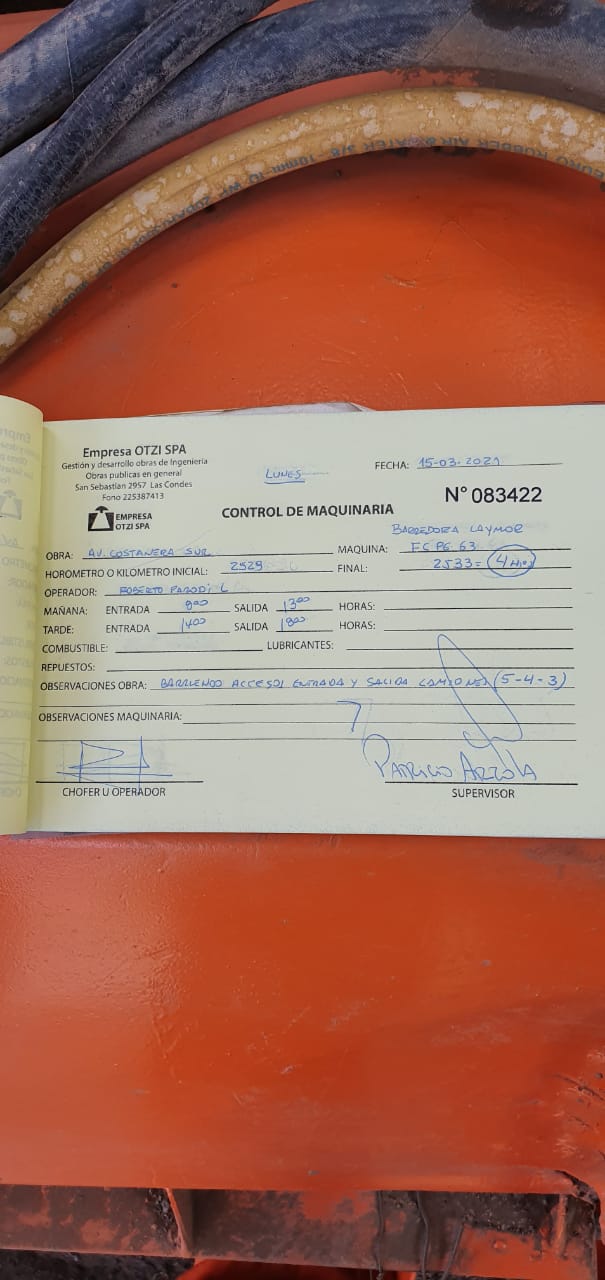 10mm
Empresa OTZI SPA
Gestión y desarrollo obras de Ingenieria
Obras publicas en general
San Sebastian 2957 Las Condes
Fono 225387413
EMPRESA
OTZI SPA
LUNES
FECHA: 15-03-2021
N° 083422
CONTROL DE MAQUINARIA
BARREDORA LAYMOR
OBRA: AV. COSTANERA SUR MAQUINA: FCPG. 63
HOROMETRO O KILOMETRO INICIAL: 2529 FINAL: 2533 = (4 Hrs)
OPERADOR: ROBERTO PARODI L
MAÑANA: ENTRADA 8:00 SALIDA 13:00 HORAS:
TARDE: ENTRADA 14:00 SALIDA 18:00 HORAS:
COMBUSTIBLE: LUBRICANTES:
REPUESTOS:
OBSERVACIONES OBRA: BARRIENDO ACCESOS ENTRADA Y SALIDA CAMIONES (5-4-3)
OBSERVACIONES MAQUINARIA:
PATRICIO ARZOLA
CHOFER U OPERADOR SUPERVISOR